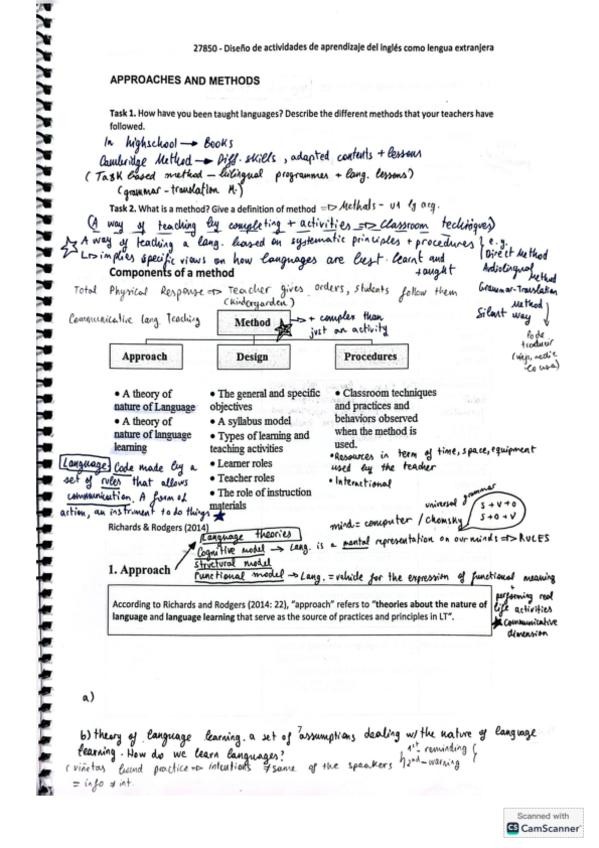 27850 - Diseño de actividades de aprendizaje del inglés como lengua extranjera
APPROACHES AND METHODS
Task 1. How have you been taught languages? Describe the different methods that your teachers have
followed.
In highschool → Books
Cambridge Method → Diff. skills, adapted contents + lessons
(Task based method - bilingual programmes + lang. lessons)
(grammar - translation M.)
Task 2. What is a method? Give a definition of method ⇒ Methods -
(A way of teaching by completing + activities ⇒ Classroom techniques)
A way of teaching a lang. based on systematic principles + procedures } e.g.
↳ implies specific views on how languages are best learnt and
taught
Direct Method
Audiolingual Method
Grammar-Translation
Method
Silent way
Components of a method
Total Physical Response ⇒ Teacher gives orders, students follow them
(Kindergarden)
Communicative Lang. Teaching
Method
→ + complex than
just an activity
Approach
Design
Procedures
• A theory of
nature of Language
• A theory of
nature of language
learning
• The general and specific
objectives
• A syllabus model
• Types of learning and
teaching activities
• Learner roles
• Teacher roles
• The role of instruction
materials
• Classroom techniques
and practices and
behaviors observed
when the method is
used.
• Resources in term of time, space, equipment
used by the teacher
• Interactional
Language: Code made by a
set of rules that allows
communication. A form of
action, an instrument to do things
Richards & Rodgers (2014)
universal grammar
S + V + O
S + O + V
mind = computer / Chomsky
Language theories
Cognitive model → Lang. is a mental representation on our minds ⇒ RULES
Structural model
Functional model → Lang. = vehicle for the expression of functional meaning
+
performing real
life activities
Communicative
dimension
1. Approach
According to Richards and Rodgers (2014: 22), "approach" refers to "theories about the nature of
language and language learning that serve as the source of practices and principles in LT".
a)
b) theory of language learning. a set of assumptions dealing w/ the nature of language
learning. How do we learn languages?
1st - reminding
2nd - warning
(viñetas practice intentions ≠ same of the speakers
= info ≠ int.
Scanned with
CS CamScanner